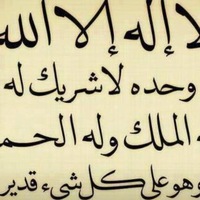 لا إله إلا الله
وحده لا شريك له
له الملك وله الحم
وهو على كل شيء قدير